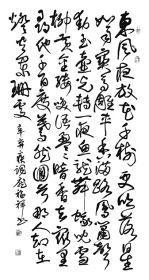 東風夜放花千樹更吹落星
如雨寶馬雕車香滿路鳳簫聲
動玉壺光轉一夜魚龍舞蛾兒雪
柳黃金縷笑語盈盈暗香去衆里
尋他千百度驀然回首那人却在
燈火闌珊處 辛棄疾詞